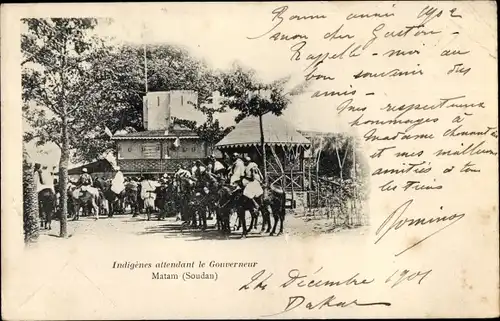 Bonne année 1902
mon cher Gaston
Rappelle-moi au
bon souvenir des
amis.
Mes respectueux
hommages à
Madame
et mes meilleures
amitiés à tous
les tiens
Domino
Indigènes attendant le Gouverneur
Matam (Soudan)
24 Décembre 1901
Dakar